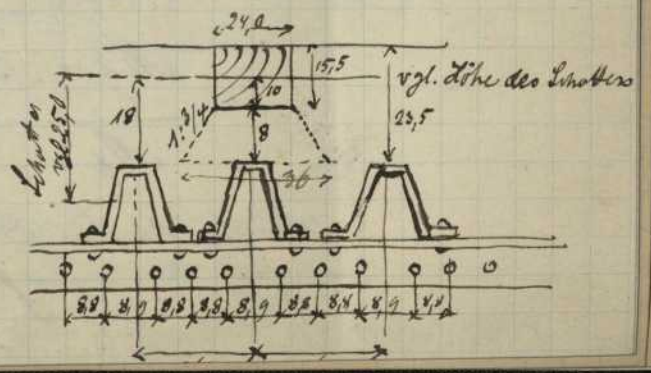 24,0
15,5
vgl. Höhe des Schotters
10
18
1:3/4
8
23,5
Schotter
vgl 25,0
36
8,8 8,9 8,8 8,8 8,9 8,8 8,8 8,9 8,8